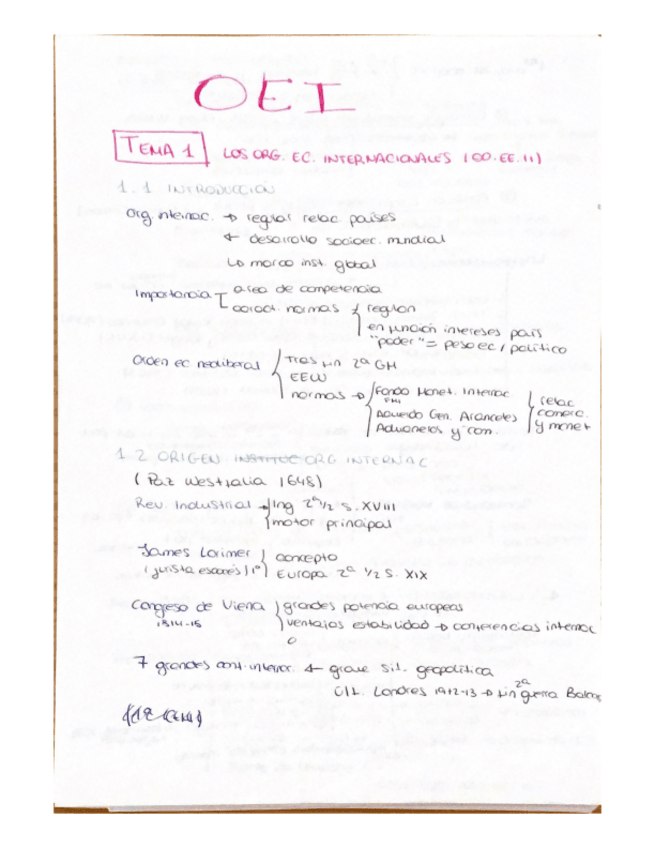 OEI
TEMA 1 LOS ORG. EC. INTERNACIONALES (OO.EE.II)
1.1 INTRODUCCIÓN
Org internac. → regular relac países
+ desarrollo socioec. mundial
↳ marco inst. global
Importancia area de competencia
caract. normas regulan
en función intereses país
"poder" = peso ec / político
Orden ec neoliberal Tras fin 2ª GM
EEUU
normas → Fondo Monet. Internac.
FMI
Acuerdo Gen. Aranceles
Aduaneros y com.
relac
comerc.
y monet
1.2 ORIGEN ORG INTERNAC
(Paz Westfalia 1648)
Rev. Industrial → Ing 2ª 1/2 s. XVIII
motor principal
James Lorimer concepto
(jurista escocés) 1º Europa 2ª 1/2 S. XIX
Congreso de Viena grandes potencia europeas
1814-15 ventajas estabilidad → conferencias internac
7 grandes conf. internac. ← grave sit. geopolítica
Londres 1912-13 → fin 2ª guerra Balcan